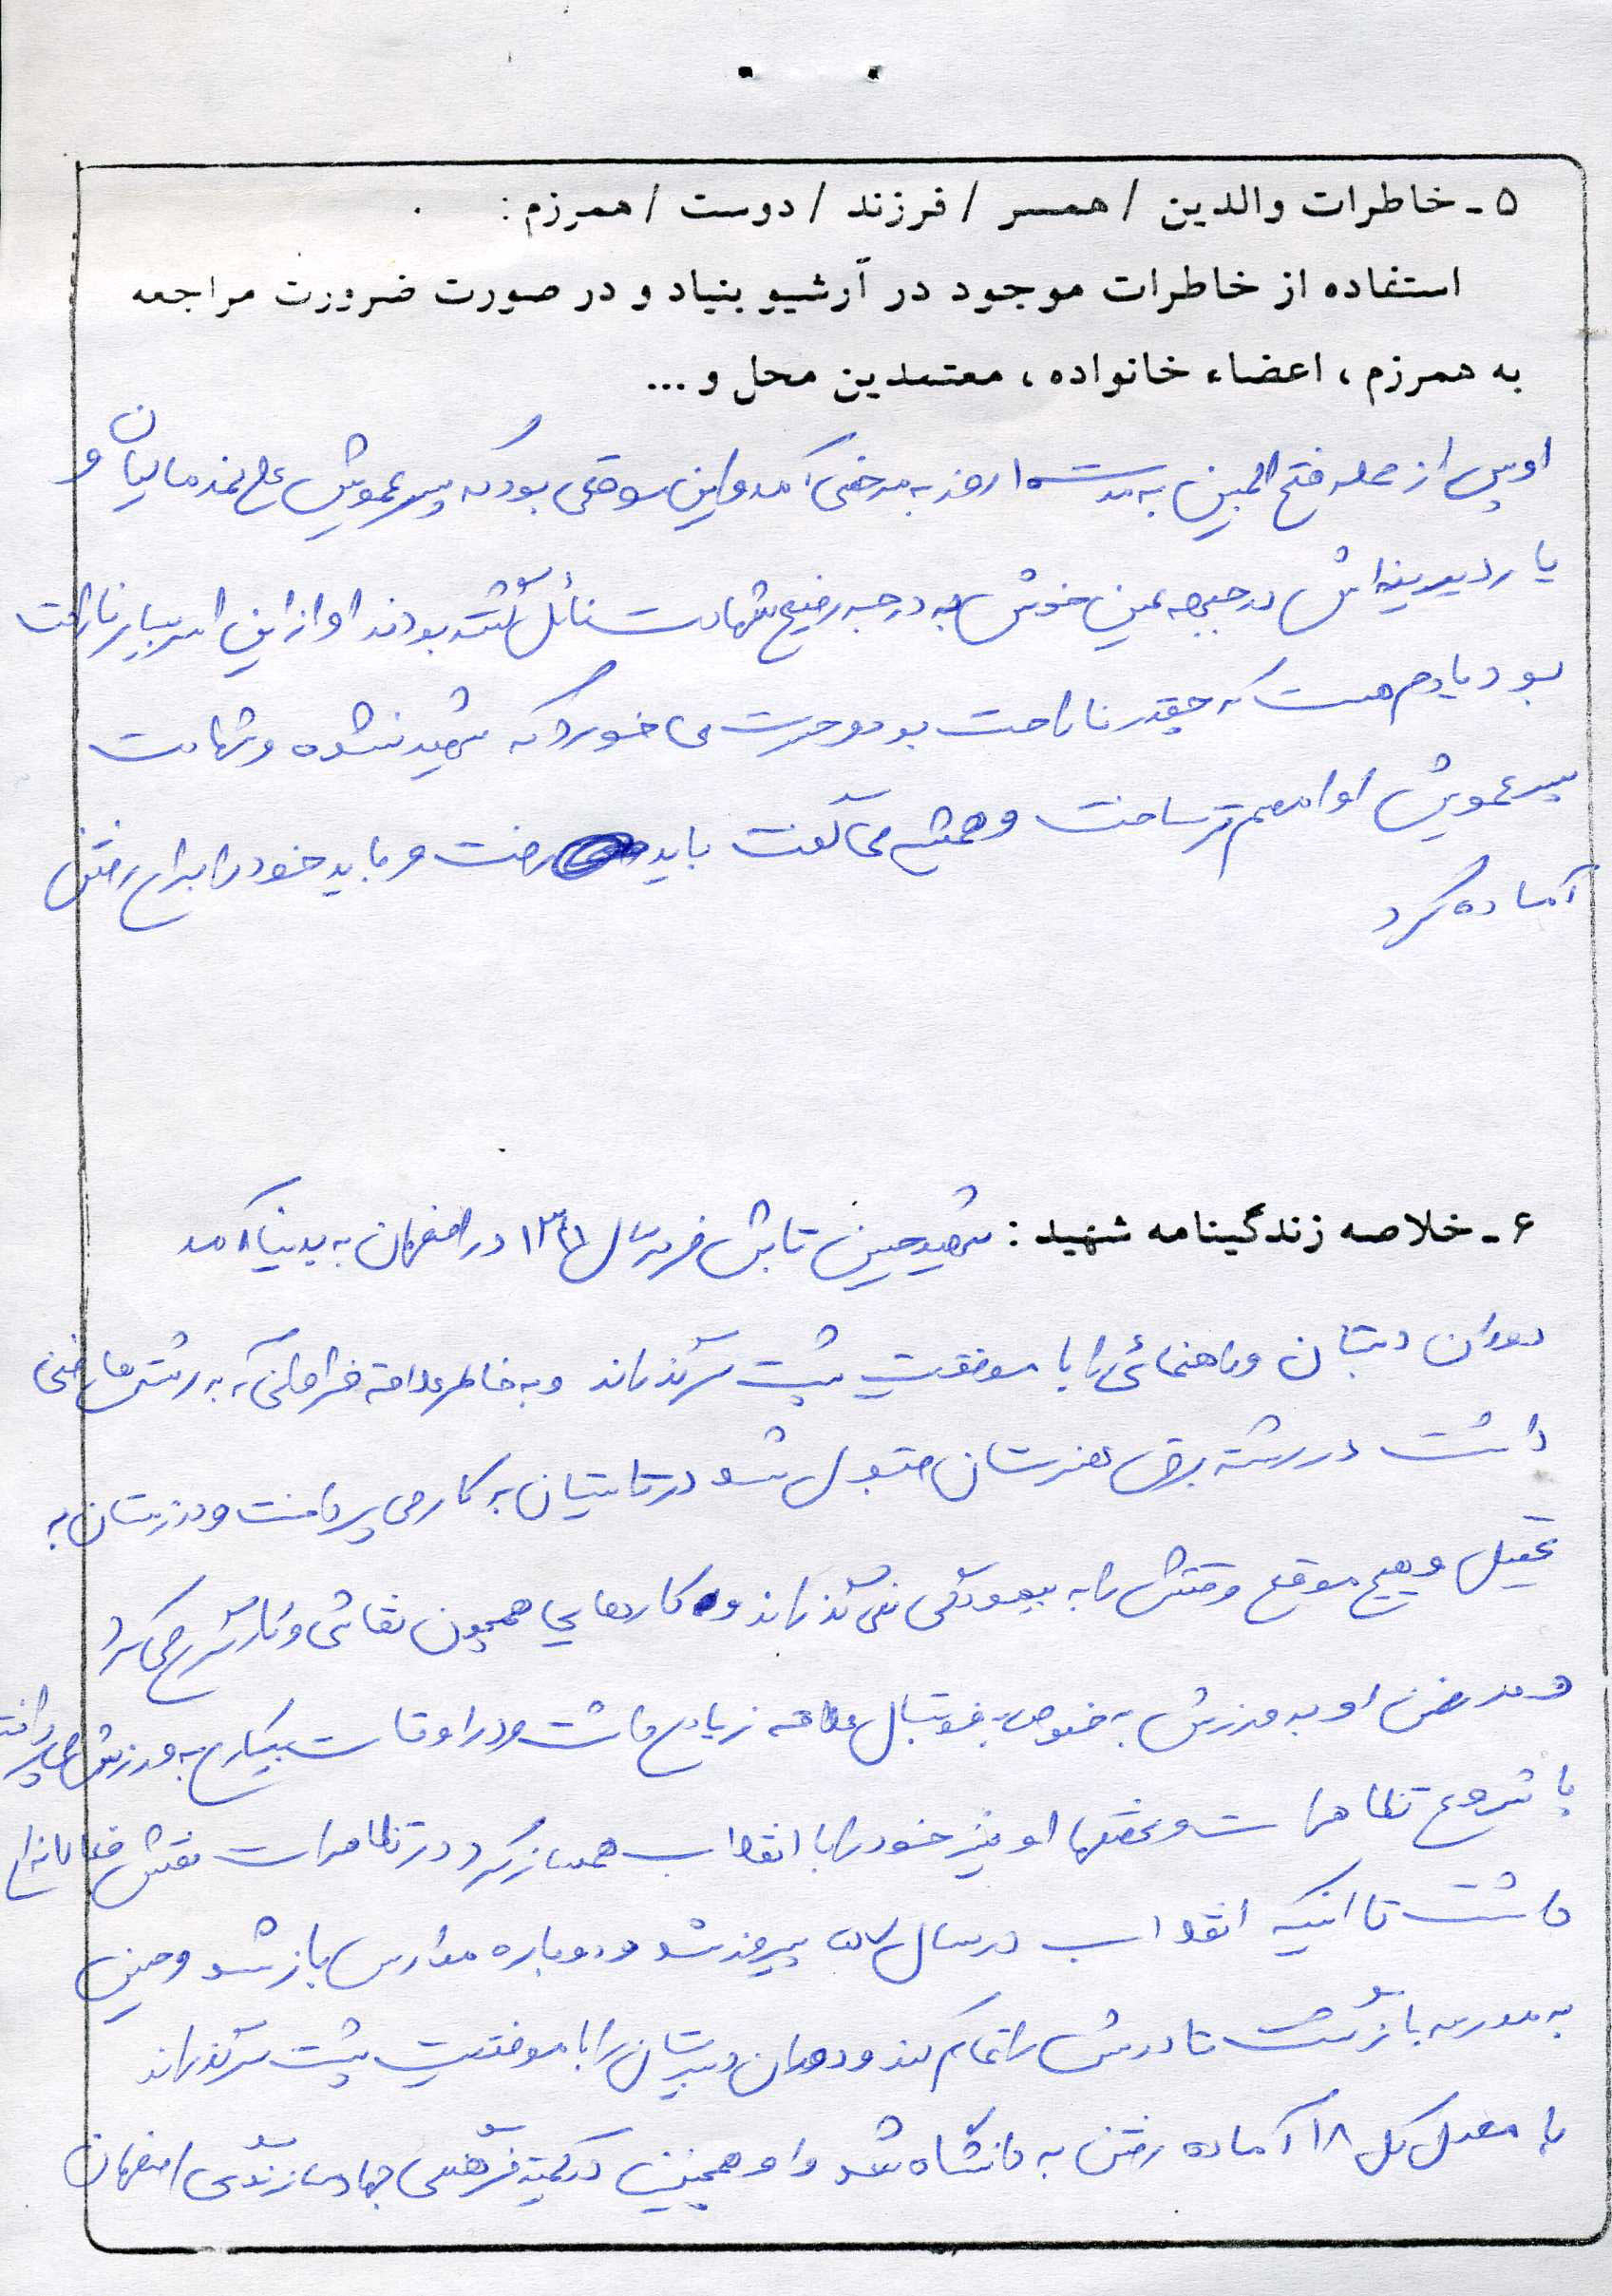 ۵ - خاطرات والدین / همسر / فرزند / دوست / همرزم :
استفاده از خاطرات موجود در آرشیو بنیاد و در صورت ضرورت مراجعه
به همرزم ، اعضاء خانواده ، معتمدین محل و ...
او پس از حمله فتح المبین به مدت ۱۰ روز به مرخصی آمد و این موقعی بود که پسر عمویش علی نمدمالیان و
یار دیرینه‌اش در جبهه عین خوش به درجه رفیع شهادت نائل گشته بودند او از این امر بسیار ناراحت
بود یادم هست که چقدر ناراحت بود و حسرت می خورد که شهید نشده و شهادت
پسر عمویش او را مصمم تر ساخت و همیشه می گفت باید رفت و باید خود را برای رفتن
آماده کرد
۶ - خلاصه زندگینامه شهید : شهید حسین تابش فر در سال ۱۳۴۱ در اصفهان به دنیا آمد
دوران دبستان و راهنمائی را با موفقیت پشت سر گذراند و به خاطر علاقه فراوانی که به رشته های فنی
داشت در رشته برق هنرستان قبول شد در تابستان به کار می پرداخت و در زمستان به
تحصیل و هیچ موقع وقتش را به بیهودگی نمی گذراند و کارهایی همچون نقاشی و می کرد
و در ضمن او به ورزش به خصوص به فوتبال علاقه زیادی داشت و در اوقات بیکاری به ورزش می پرداخت
با شروع تظاهرات و او نیز خود را با انقلاب همساز کرد در تظاهرات نقش فعالانه ای
داشت تا اینکه انقلاب در سال ۵۷ پیروز شد و دوباره مدارس باز شد و حسین
به مدرسه بازگشت تا درسش را تمام کند و دوران دبیرستان را با موفقیت پشت سر گذراند
با معدل کل ۱۸ آماده رفتن به دانشگاه شد و او همچنین در کمیته فرهنگی جهاد سازندگی اصفهان